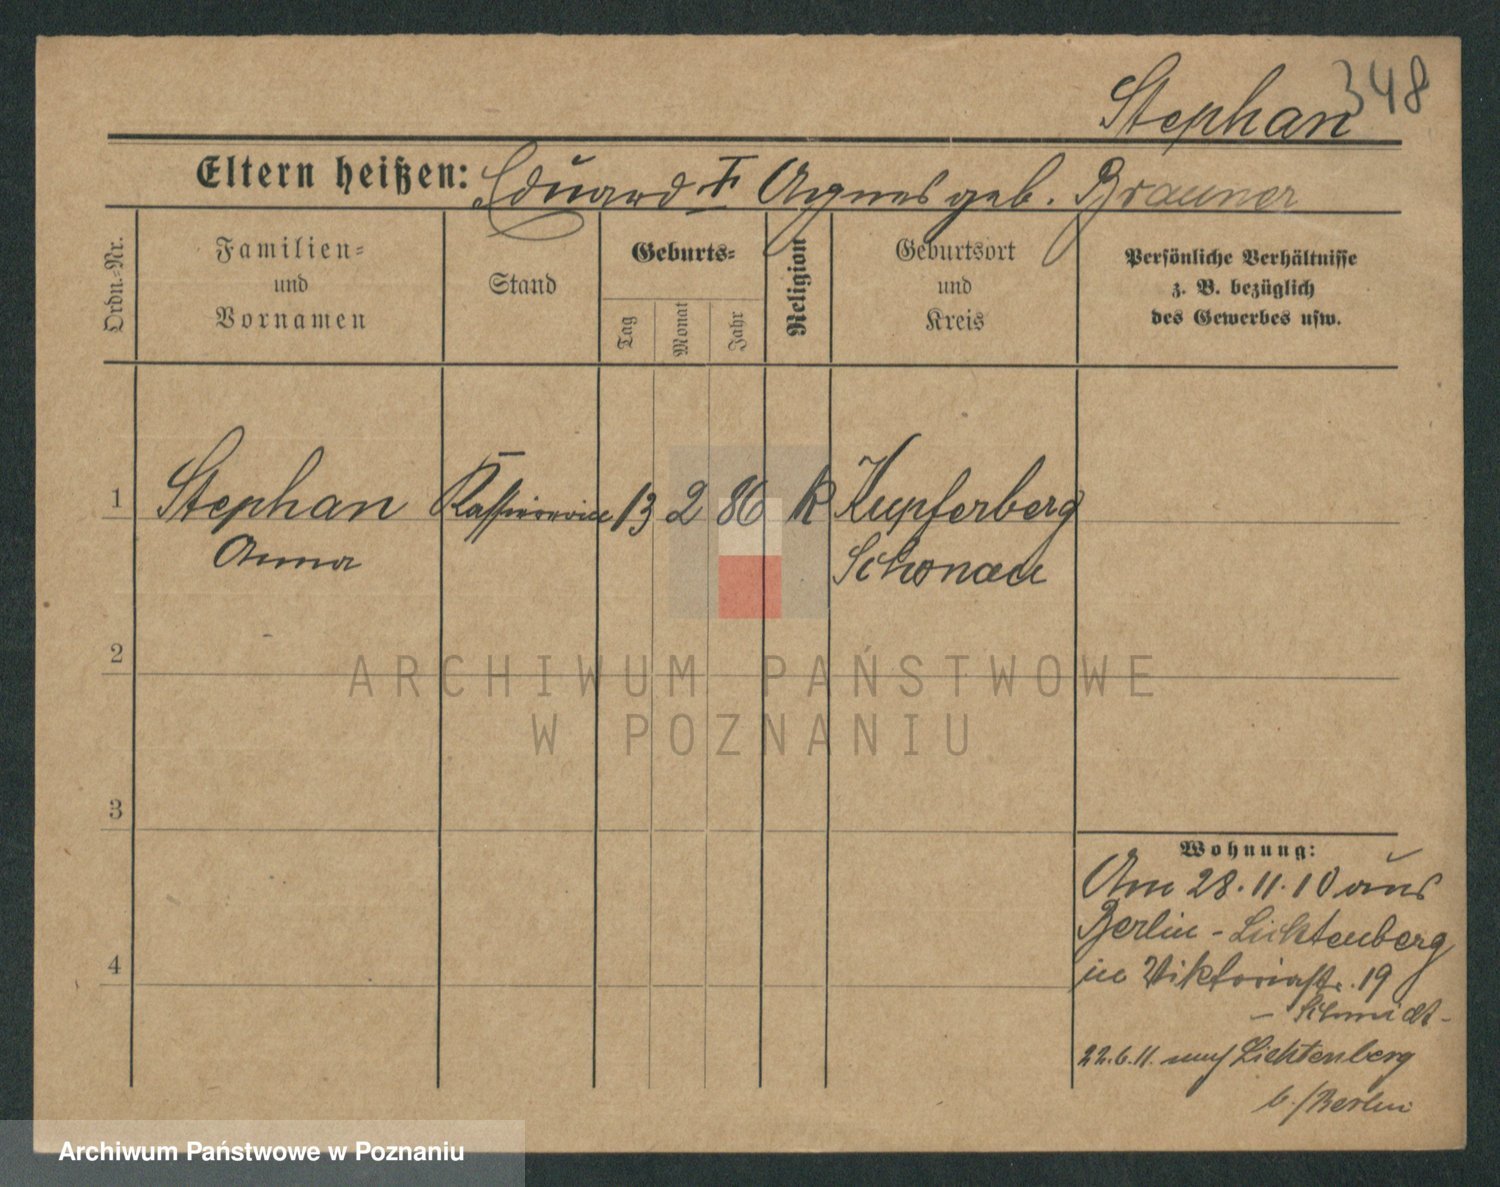 348
Stephan
Eltern heißen: Eduard † Agnes geb. Brauner
Ordn.-Nr.
Familien-
und
Vornamen
Stand
Geburts-
Tag
Monat
Jahr
Religion
Geburtsort
und
Kreis
Persönliche Verhältnisse
z. B. bezüglich
des Gewerbes usw.
1
Stephan
Anna
Kassiererin
13
2
86
k
Kupferberg
Schönau
2
3
4
Wohnung:
Am 28.11.10 aus
Berlin-Lichtenberg
in Viktoriastr. 19
- Schmidt -
22.6.11. nach Lichtenberg
b./Berlin
ARCHIWUM PAŃSTWOWE
W POZNANIU
Archiwum Państwowe w Poznaniu